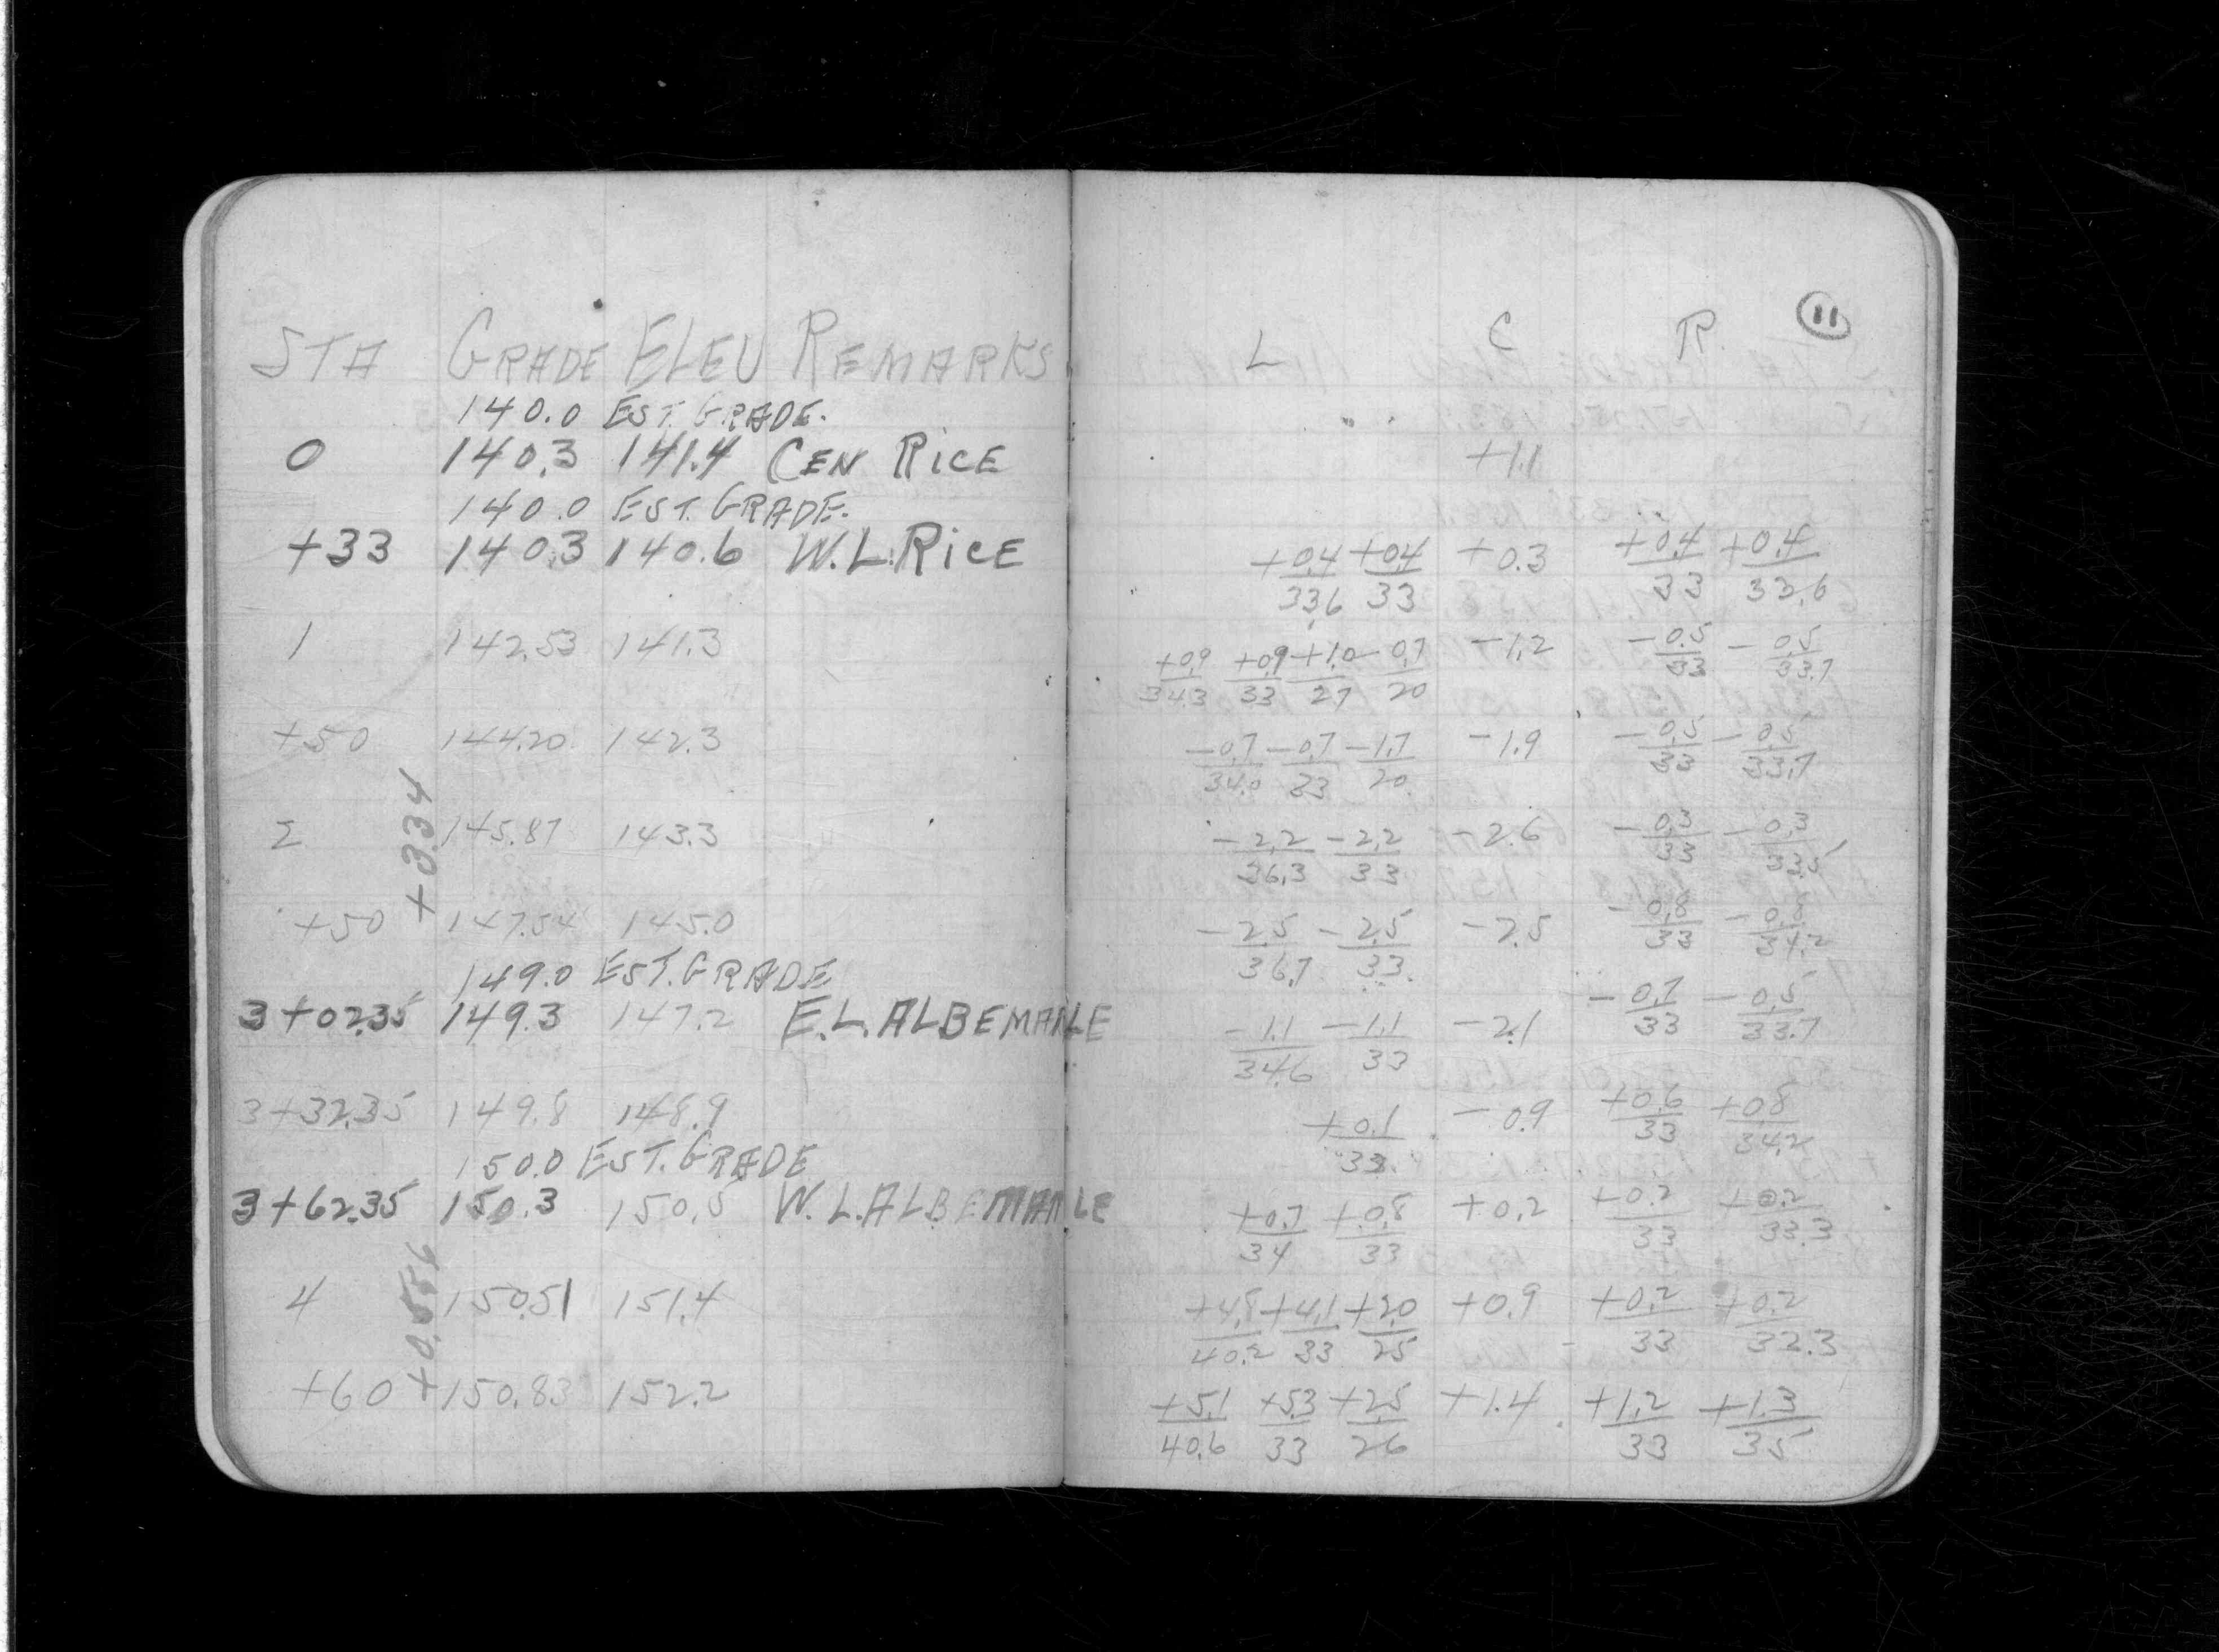 STA GRADE ELEV REMARKS
140.0 EST. GRADE.
0 140.3 141.4 CEN RICE
140.0 EST. GRADE.
+33 140.3 140.6 W.L. RICE
1 142.53 141.3
+50 144.20 142.3
2 145.87 143.3
+3.34
+50 147.54 145.0
149.0 EST. GRADE
3+02.35 149.3 147.2 E.L. ALBEMARLE
3+32.35 149.8 148.9
150.0 EST. GRADE
3+62.35 150.3 150.5 W.L. ALBEMARLE
4 150.51 151.4
+0.556
+60 150.83 152.2
11
L C R.
+1.1
+0.4 +0.4 +0.3 +0.4 +0.4
33.6 33 33 33.6
+0.9 +0.9 +1.0 -0.7 -1.2 -0.5 -0.5
34.3 33 27 20 33 33.7
-0.7 -0.7 -1.7 -1.9 -0.5 -0.5
34.0 33 20. 33 33.7
-2.2 -2.2 -2.6 -0.3 -0.3
36.3 33 33 33.5
-2.5 -2.5 -2.5 -0.8 -0.8
36.7 33. 33 34.2
-1.1 -1.1 -2.1 -0.7 -0.5
34.6 33 33 33.7
+0.1 -0.9 +0.6 +0.8
33. 33 34.2
+0.7 +0.8 +0.2 +0.2 +0.2
34 33 33 33.3
+4.8 +4.1 +2.0 +0.9 +0.2 +0.2
40.2 33 25 33 32.3
+5.1 +5.3 +2.5 +1.4 +1.2 +1.3
40.6 33 26 33 35